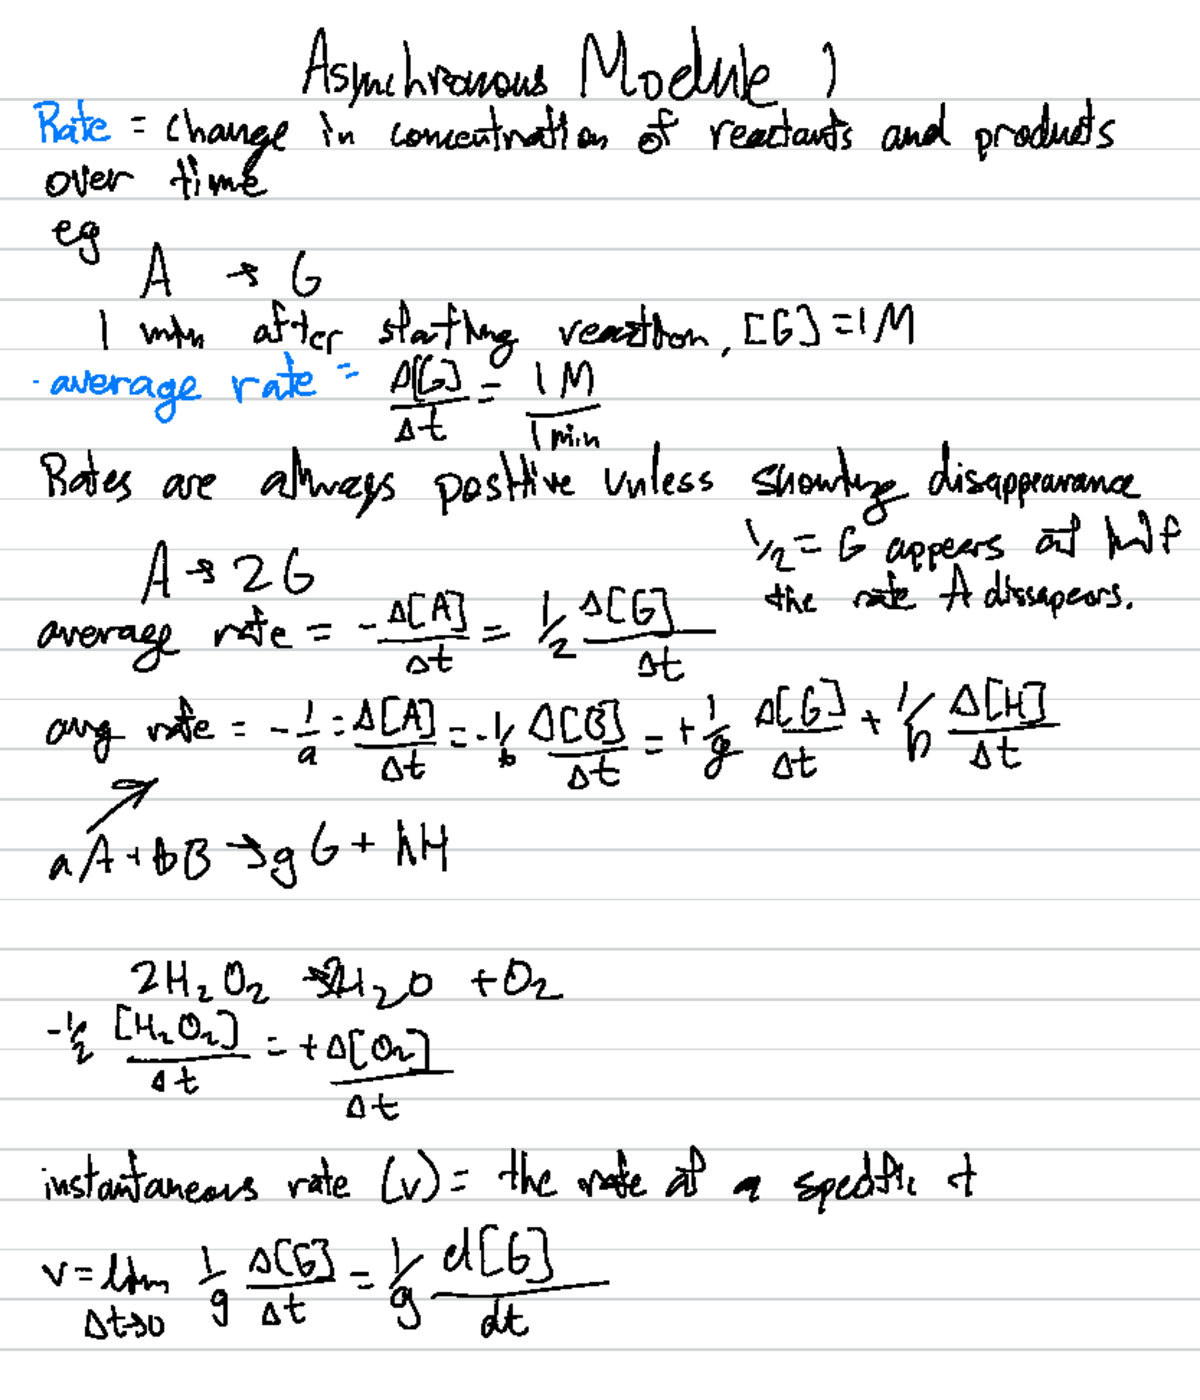 Asynchronous Module 1
Rate = change in concentration of reactants and products
over time
eg
A → G
1 min after starting reaction, [G] = 1 M
· average rate = Δ[G]/Δt = 1 M/1 min
Rates are always positive unless showing disappearance
1/2 = G appears at half
the rate A dissapears.
A → 2G
average rate = - Δ[A]/Δt = 1/2 Δ[G]/Δt
avg rate = - 1/a = Δ[A]/Δt = - 1/b Δ[B]/Δt = + 1/g Δ[G]/Δt + 1/h Δ[H]/Δt
aA + bB → gG + hH
2H₂O₂ → 2H₂O + O₂
-1/2 [H₂O₂]/Δt = + Δ[O₂]/Δt
instantaneous rate (v) = the rate at a specific t
v = lim Δt→0 1/g Δ[G]/Δt = 1/g d[G]/dt